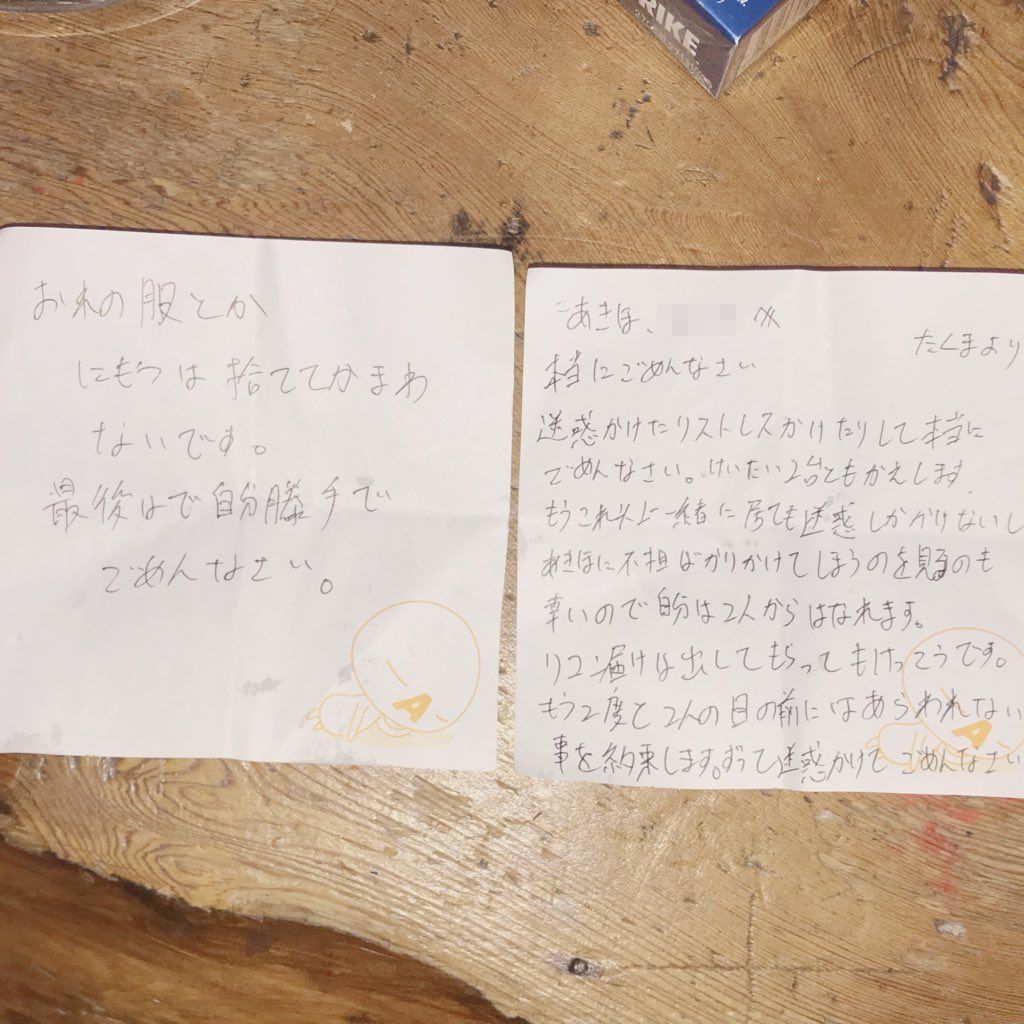 RIKE
おれの服とか
にもつは捨ててかまわ
ないです。
最後まで自分勝手で
ごめんなさい。
あきほ、 へ
たくまより
本当にごめんなさい
迷惑かけたりストレスかけたりして本当に
ごめんなさい。けいたい2台ともかえします
もうこれ以上一緒に居ても迷惑しかかけないし
あきほに不担ばかりかけてしまうのを見るのも
辛いので自分は2人からはなれます。
リコン届けは出してもらってもけっこうです。
もう2度と2人の目の前にはあらわれない
事を約束します。ずっと迷惑かけてごめんなさい